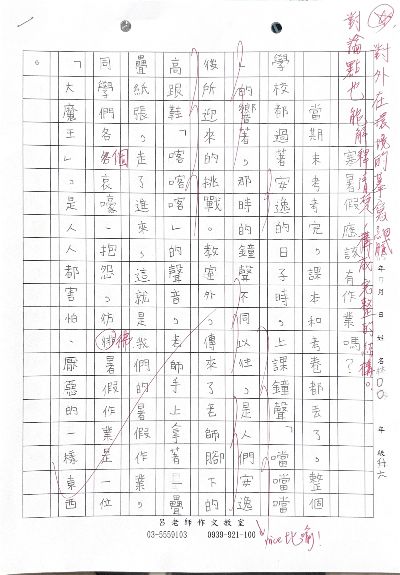 對外在環境的摹寫細膩
對論點也能解釋清楚，構成完整的結構。
寒暑假應該有作業嗎？
當期末考考完，課本和考卷都丟了。整個
學校都過著安逸的日子時，上課鐘聲「噹噹噹
」的響著。那時的鐘聲不同以往，是人們安逸
後所迎來的挑戰。教室外傳來了老師腳下的
高跟鞋「喀喀喀」的聲音，老師手上拿著一疊
疊紙張，走了進來。這就是我們的暑假作業。
同學們各個哀嚎、抱怨，彷彿暑假作業是一位
「大魔王」。是人人都害怕、厭惡的一樣東西
。
nice比喻！
呂老師作文教室
03-5559103 0939-921-100